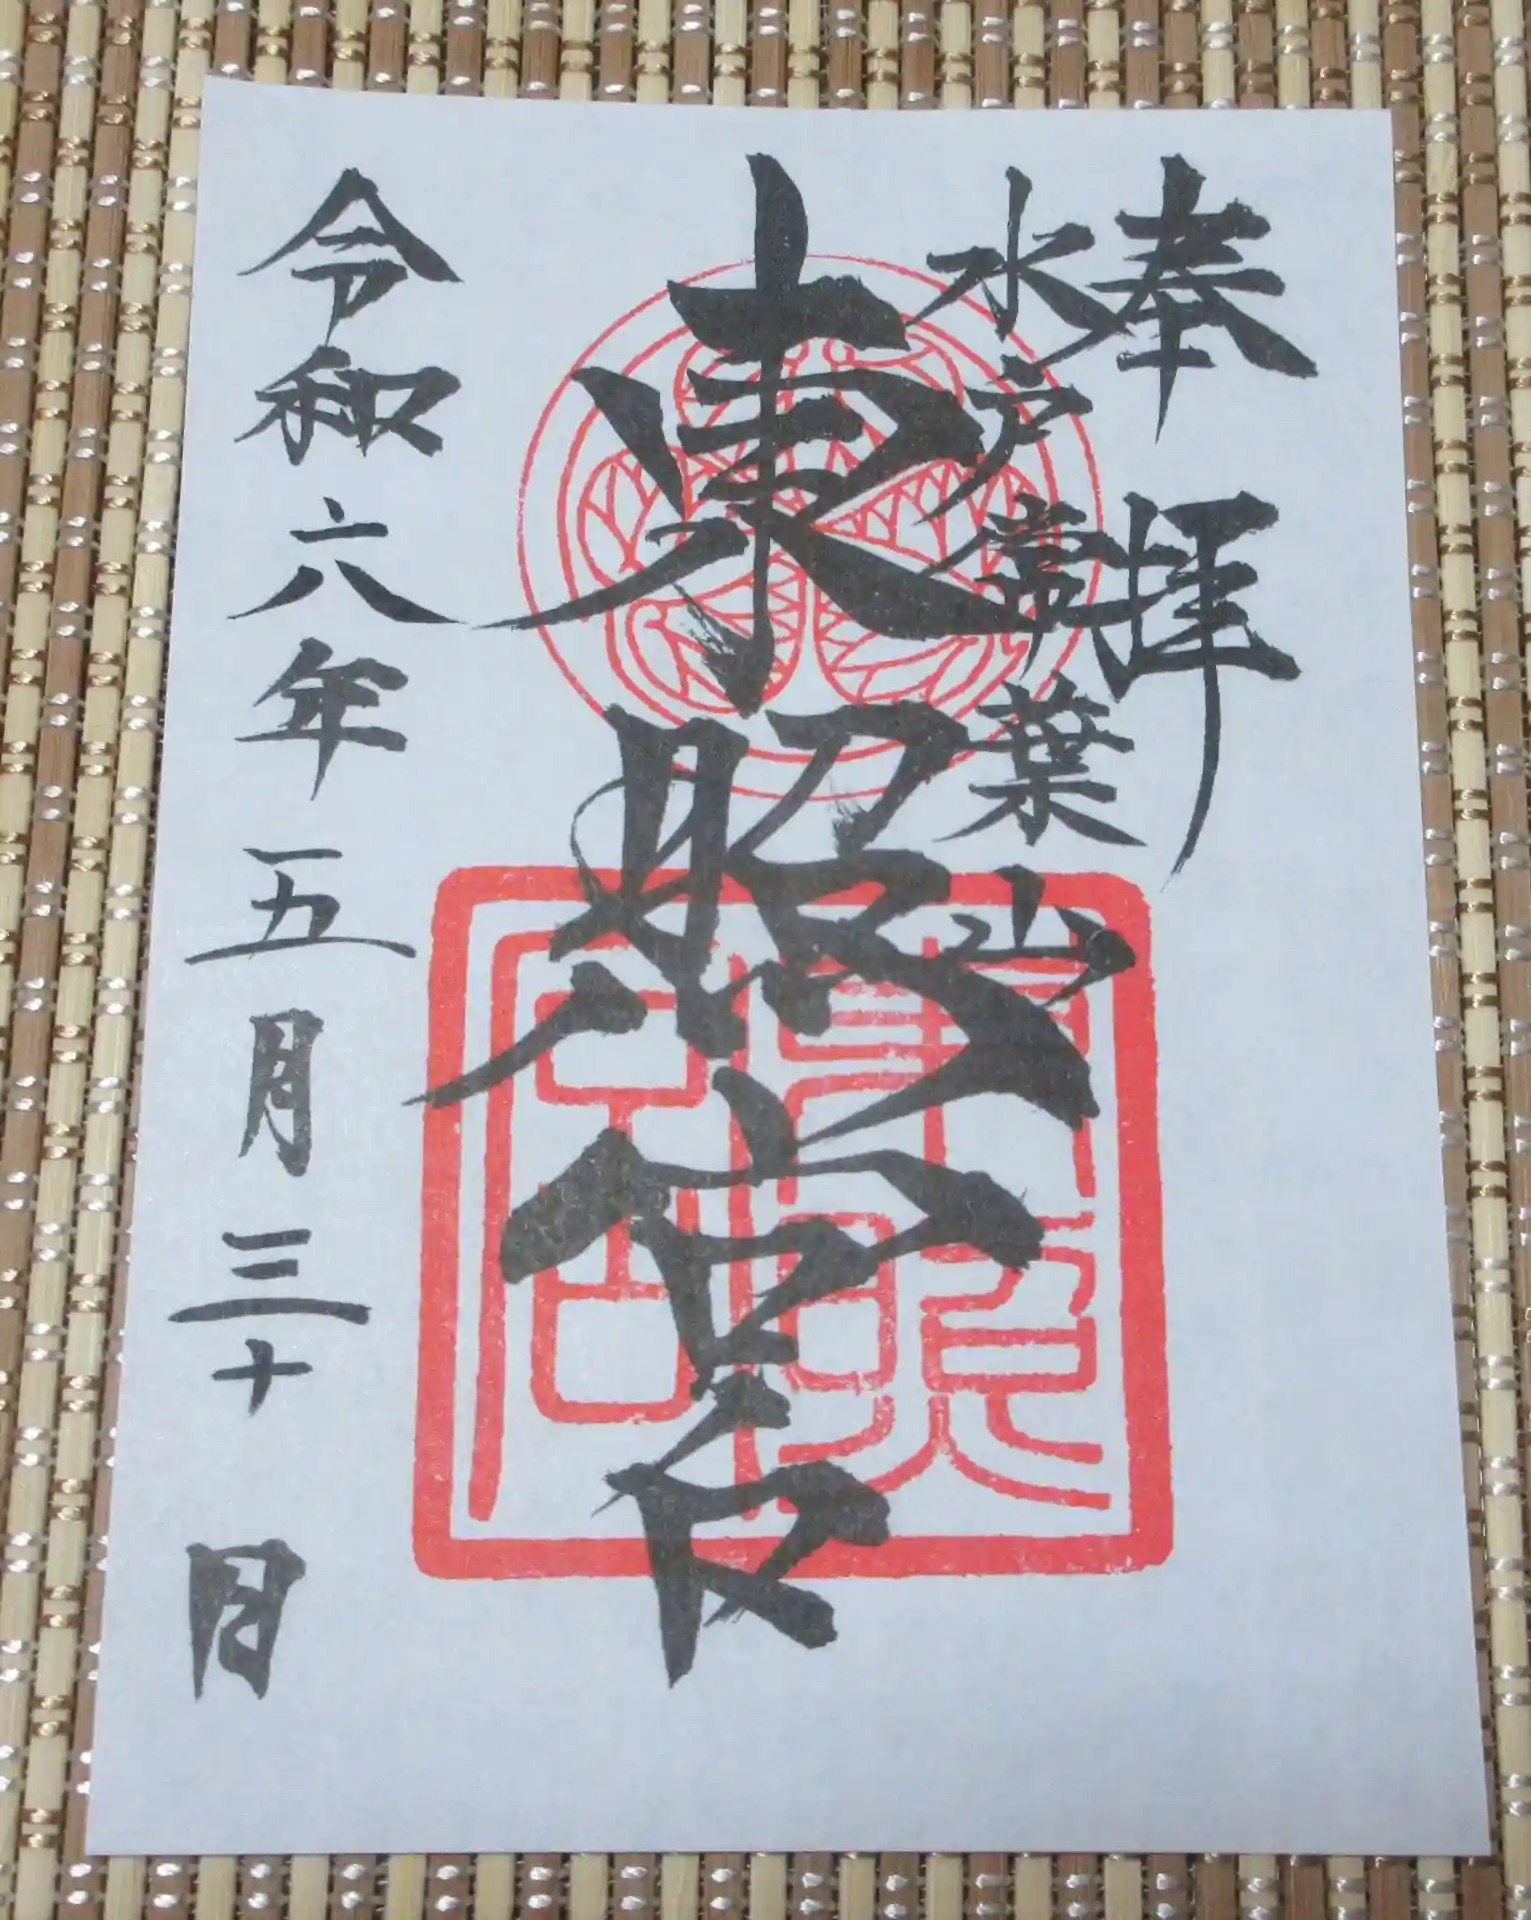 奉拝
水戸常葉山
東照宮
東照宮
令和六年五月三十日